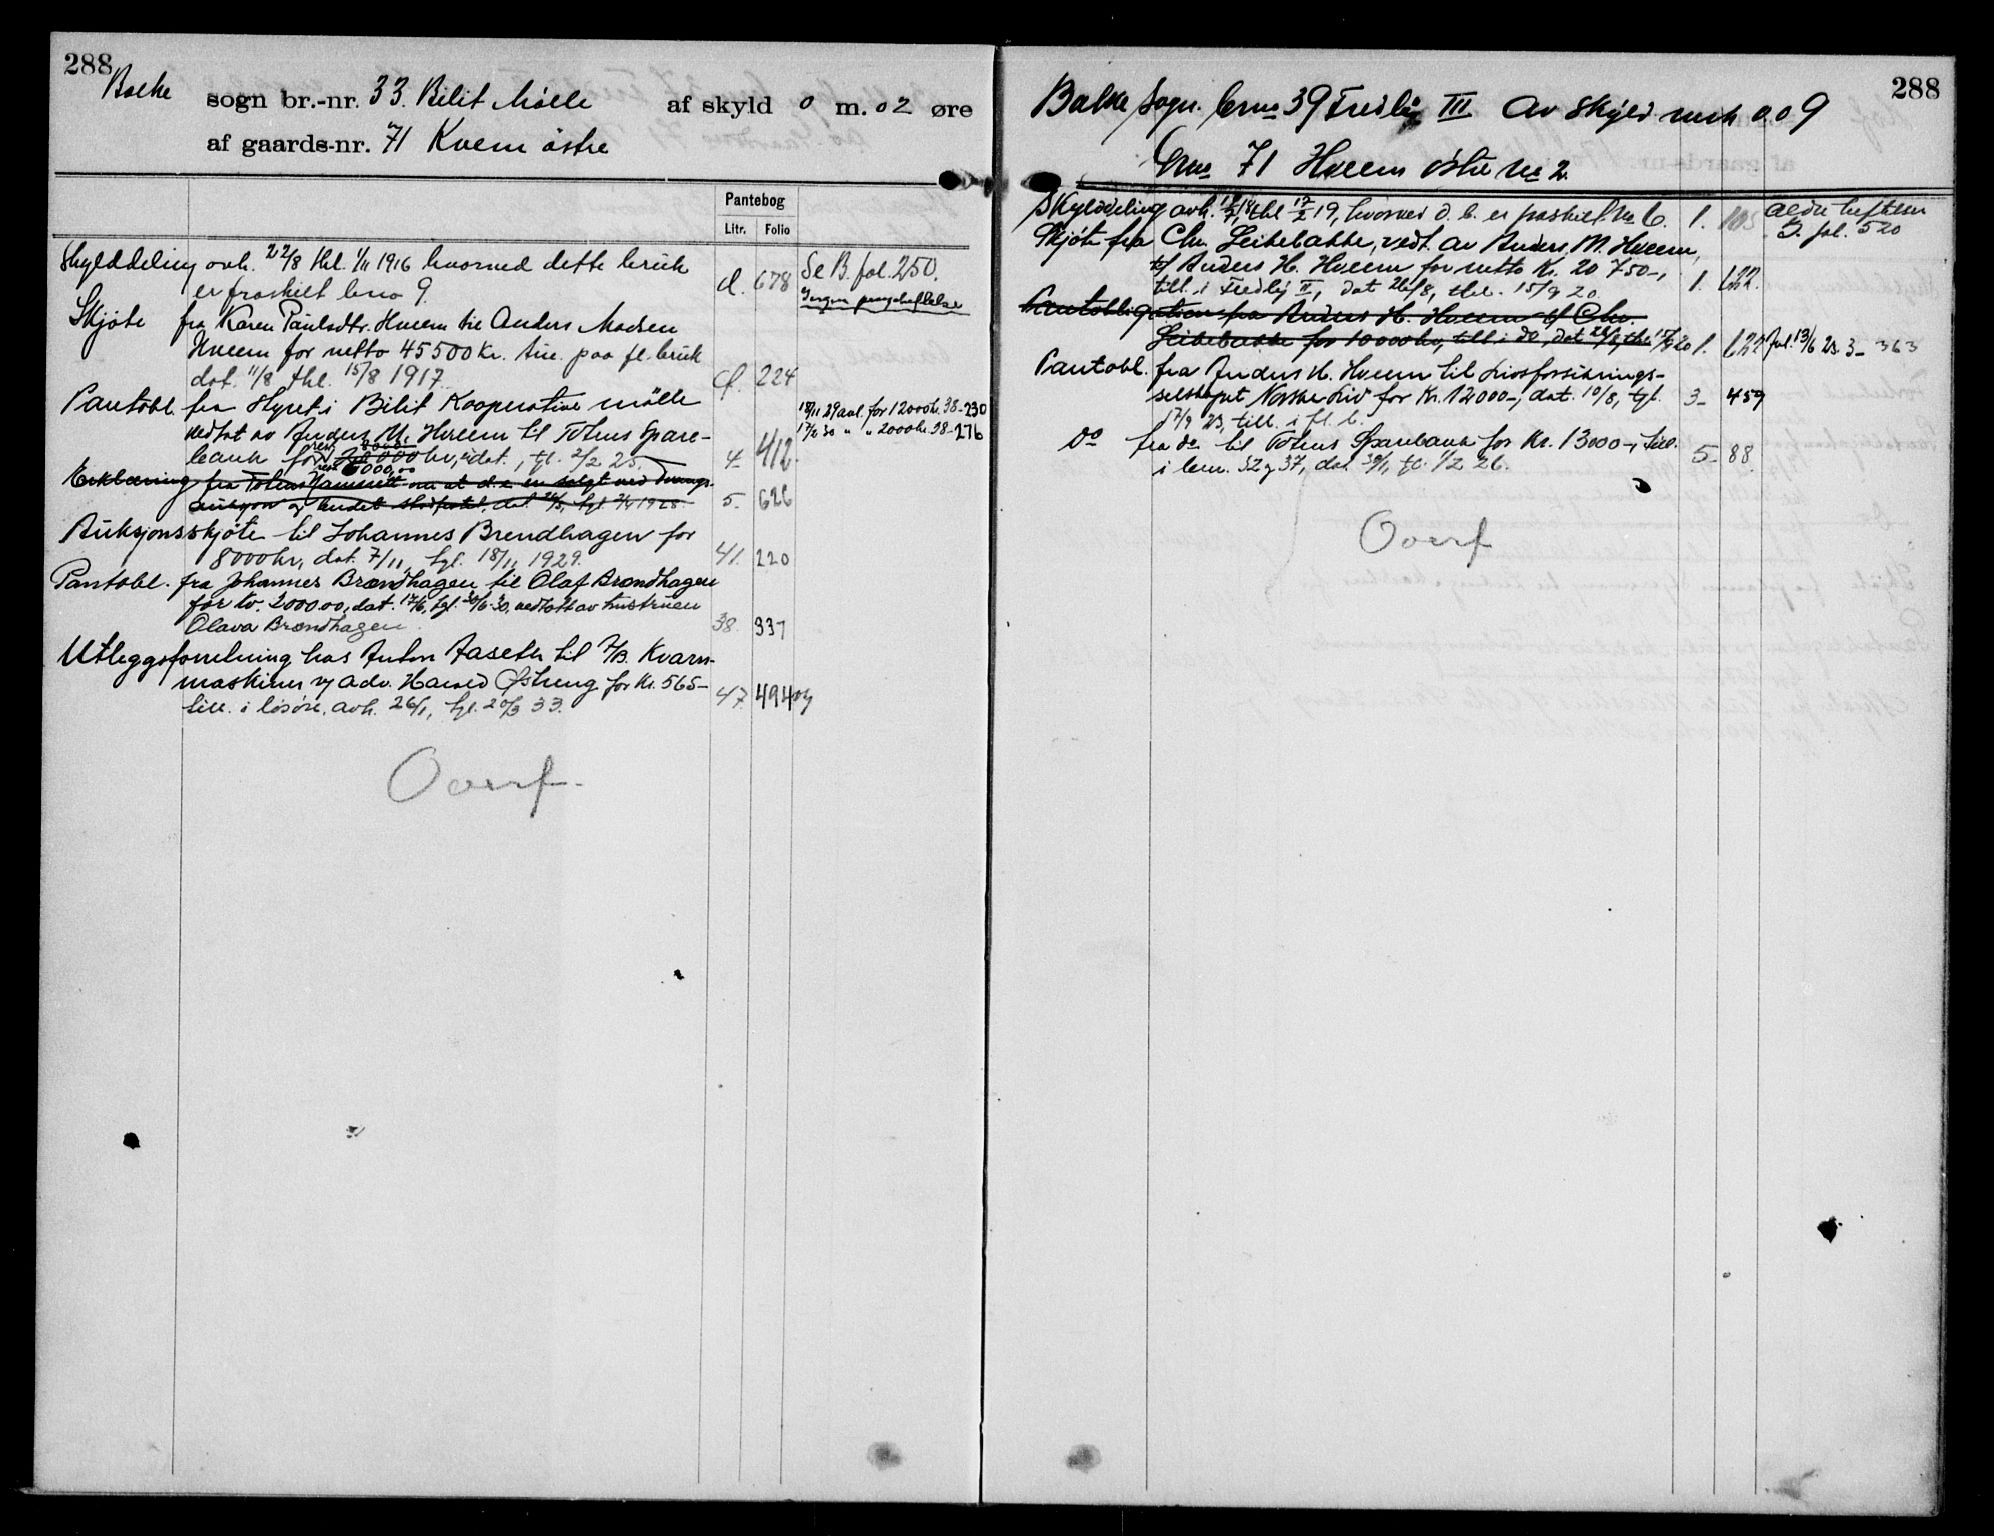 288
Balke sogn br.-nr. 33. Bilit Mølle af skyld 0 m. 02 øre
af gaards-nr. 71 Kvem østre
Pantebog
Litr. Folio
Skylddeling avh. 22/8 thl. 1/11 1916 hvorved dette bruk
er fraskilt brno 9. d. 678 Se B. fol. 250.
Ingen pengeheftelse
Skjøte fra Karen Paulsdtr. Hveem til Anders Madsen
Hveem for netto 45500 Kr. paa fl. bruk
dat. 11/8 thl. 15/8 1917. f. 224
Pantobl. fra Styret i Bilit Kooperative mølle
vedtat av Anders M. Hveem til Totens Spare-
bank for kr, dat. , tgl. 2/2 25. 4 412
18/11 29 avl. for 12000 kr. 38-230
17/2 30 " " 2000 kr. 38-276
Erklæring fra Totens om at d.e. er solgt ved tvangs-
auksjon og budet stadfestet, dat. tgl. 1928. 5. 626
Auksjonsskjøte til Johannes Brendhagen for
8000 kr, dat. 7/11, tgl. 18/11 1929. 41. 220
Pantobl. fra Johannes Brændhagen til Olaf Brændhagen
for kr. 2000.00, dat. 17/6, tgl. 30/6 30, vedtatt av hustruen
Olava Brændhagen. 38. 337
Utleggsforretning hos Anton Aaseth til A/B. Kvarn-
maskiner v/ adv. Harald Østreng for Kr. 565-
till. i løsøre, avh. 26/1, tgl. 20/3 33. 47. 494
Overf.
288
Balke sogn. brno 39 Fredly III Av skyld mrk 0.09
Gno 71 Hveem østre no 2.
Skylddeling avh. thl 17/2 19, hvorved d. b. er fraskilt no 6. 1. 105 Ældre heftelser
I. fol. 520
Skjøte fra Chr. Leikebakke, vedt. av Anders M. Hveem,
til Anders H. Hveem for netto Kr. 20 750-,
till. i Fredly II, dat 26/8, thl. 15/9 20. 1. 622.
Pantobligation fra Anders H. Hveem til Chr.
Leikebakke for 10000 kr, till. i do, dat 26/8, thl. 15/9 20 1. 622 Avl. 13/6 23. 3- 363
Pantobl. fra Anders H. Hveem til Livsforsikrings-
selskapet Norske Liv for Kr. 12000-, dat. 10/8, tgl.
17/9 23, till. i fl. b. 3- 459
do fra do. til Totens Sparebank for Kr. 13000-, till.
i brn. 32 og 37, dat. 30/1, tgl. 1/2 26. 5- 88
Overf